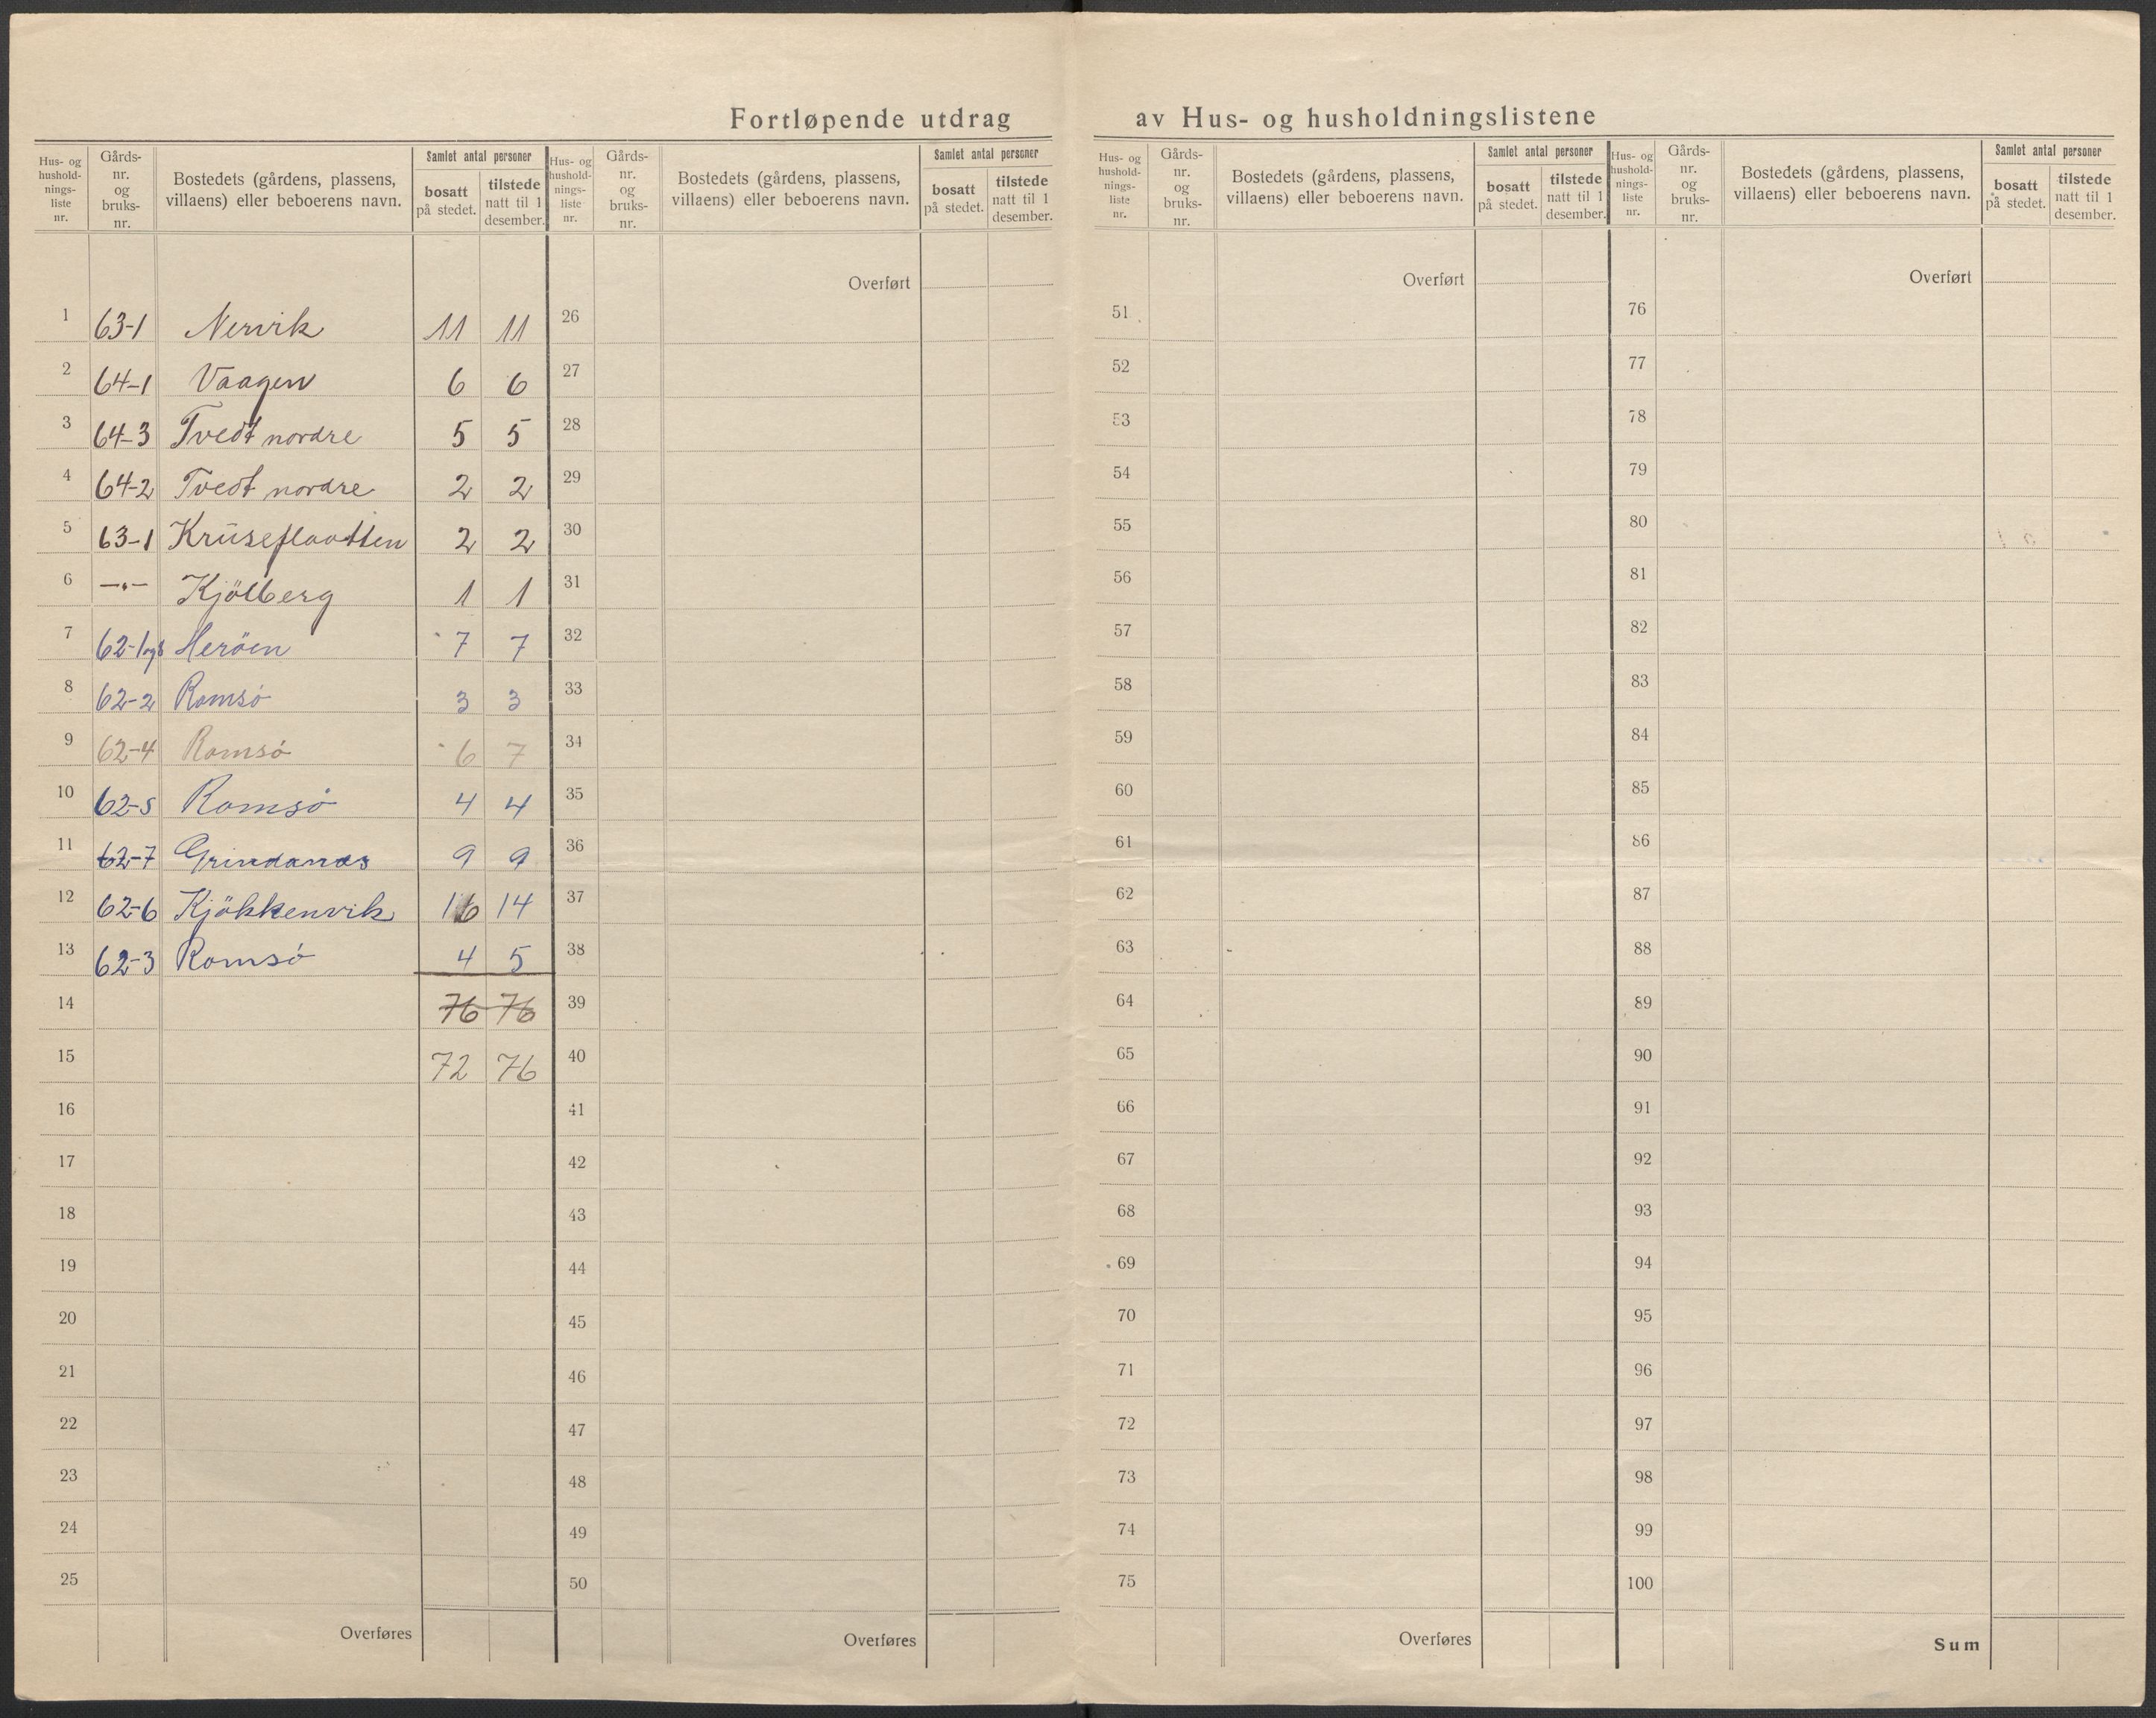 Fortløpende utdrag av Hus- og husholdningslistene
Hus- og hushold-nings-liste nr. Gårds-nr. og bruks-nr. Bostedets (gårdens, plassens, villaens) eller beboerens navn. Samlet antal personer bosatt på stedet. tilstede natt til 1 desember.
1 63-1 Nervik 11 11
2 64-1 Vaagen 6 6
3 64-3 Tvedt nordre 5 5
4 64-2 Tvedt nordre 2 2
5 63-1 Kruseflaatten 2 2
6 —„— Kjölberg 1 1
7 62-1og8 Heröen 7 7
8 62-2 Romsø 3 3
9 62-4 Romsø 6 7
10 62-5 Romsø 4 4
11 62-7 Grindanæs 9 9
12 62-6 Kjökkenvik 14
13 62-3 Romsø 4 5
14 76 76
15 72 76
16
17
18
19
20
21
22
23
24
25
Overføres
Hus- og hushold-nings-liste nr. Gårds-nr. og bruks-nr. Bostedets (gårdens, plassens, villaens) eller beboerens navn. Samlet antal personer bosatt på stedet. tilstede natt til 1 desember.
Overført
26
27
28
29
30
31
32
33
34
35
36
37
38
39
40
41
42
43
44
45
46
47
48
49
50
Overføres
Hus- og hushold-nings-liste nr. Gårds-nr. og bruks-nr. Bostedets (gårdens, plassens, villaens) eller beboerens navn. Samlet antal personer bosatt på stedet. tilstede natt til 1 desember.
Overført
51
52
53
54
55
56
57
58
59
60
61
62
63
64
65
66
67
68
69
70
71
72
73
74
75
Overføres
Hus- og hushold-nings-liste nr. Gårds-nr. og bruks-nr. Bostedets (gårdens, plassens, villaens) eller beboerens navn. Samlet antal personer bosatt på stedet. tilstede natt til 1 desember.
Overført
76
77
78
79
80
81
82
83
84
85
86
87
88
89
90
91
92
93
94
95
96
97
98
99
100
Sum